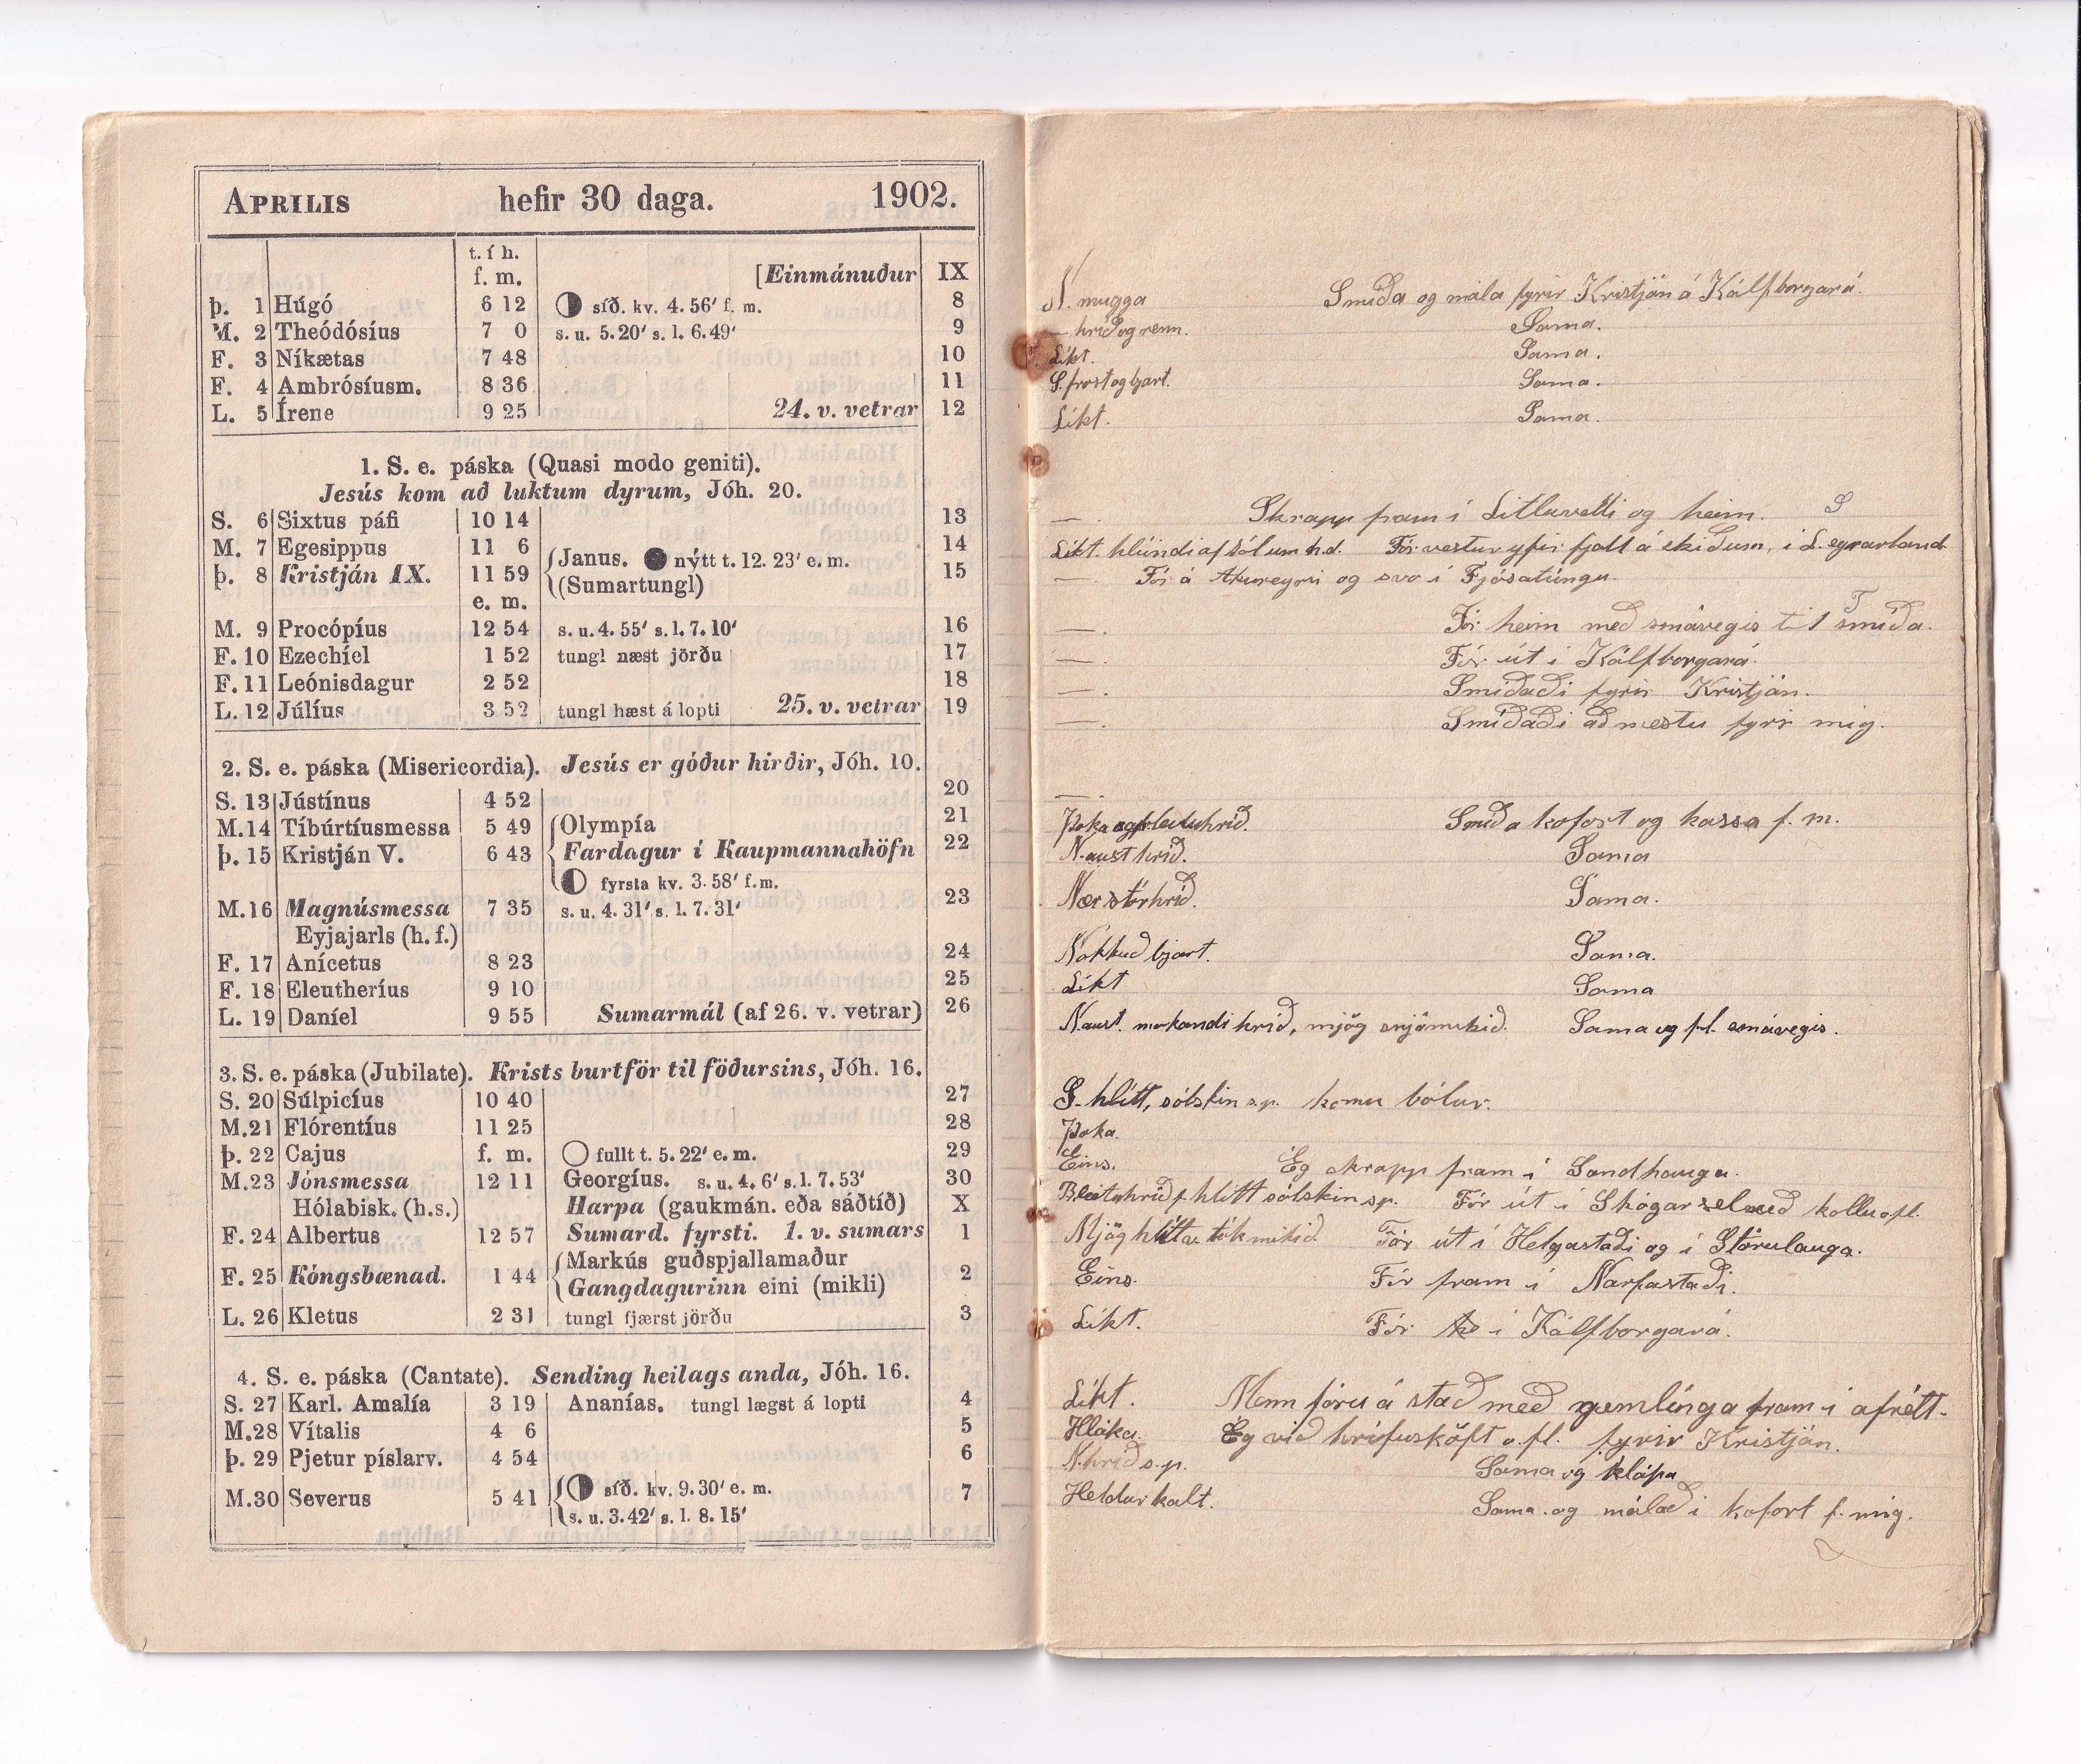 APRILIS hefir 30 daga. 1902.
t. í h.
f. m. [Einmánuður IX
þ. 1 Húgó 6 12 síð. kv. 4. 56' f. m. 8
M. 2 Theódósíus 7 0 s. u. 5.20' s. l. 6.49' 9
F. 3 Níkætas 7 48 10
F. 4 Ambrósíusm. 8 36 11
L. 5 Írene 9 25 24. v. vetrar 12
1. S. e. páska (Quasi modo geniti).
Jesús kom að luktum dyrum, Jóh. 20.
S. 6 Sixtus páfi 10 14 13
M. 7 Egesippus 11 6 Janus. nýtt t. 12. 23' e. m. 14
þ. 8 Kristján IX. 11 59 (Sumartungl) 15
e. m.
M. 9 Procópíus 12 54 s. u. 4. 55' s. l. 7. 10' 16
F. 10 Ezechíel 1 52 tungl næst jörðu 17
F. 11 Leónisdagur 2 52 18
L. 12 Júlíus 3 52 tungl hæst á lopti 25. v. vetrar 19
2. S. e. páska (Misericordia). Jesús er góður hirðir, Jóh. 10.
S. 13 Jústínus 4 52 20
M. 14 Tíbúrtíusmessa 5 49 Olympía 21
þ. 15 Kristján V. 6 43 Fardagur í Kaupmannahöfn 22
fyrsta kv. 3. 58' f. m.
M. 16 Magnúsmessa 7 35 s. u. 4. 31' s. l. 7. 31' 23
Eyjajarls (h. f.)
F. 17 Anícetus 8 23 24
F. 18 Eleutheríus 9 10 25
L. 19 Daníel 9 55 Sumarmál (af 26. v. vetrar) 26
3. S. e. páska (Jubilate). Krists burtför til föðursins, Jóh. 16.
S. 20 Súlpicíus 10 40 27
M. 21 Flórentíus 11 25 28
þ. 22 Cajus f. m. fullt t. 5. 22' e. m. 29
M. 23 Jónsmessa 12 11 Georgíus. s. u. 4. 6' s. l. 7. 53' 30
Hólabisk. (h. s.) Harpa (gaukmán. eða sáðtíð) X
F. 24 Albertus 12 57 Sumard. fyrsti. 1. v. sumars 1
Markús guðspjallamaður
F. 25 Kóngsbænad. 1 44 Gangdagurinn eini (mikli) 2
L. 26 Kletus 2 31 tungl fjærst jörðu 3
4. S. e. páska (Cantate). Sending heilags anda, Jóh. 16.
S. 27 Karl. Amalía 3 19 Ananías. tungl lægst á lopti 4
M. 28 Vítalis 4 6 5
þ. 29 Pjetur píslarv. 4 54 6
síð. kv. 9. 30' e. m.
M. 30 Severus 5 41 7
s. u. 3. 42' s. l. 8. 15'
N. mugga Smíða og mála fyrir Kristján á Kálfborgará.
— hríð og renn. Sama.
Líkt. Sama.
S. frost og bjart. Sama.
Líkt. Sama.
—. Skrapp fram í Litluvelli og heim. S
Líkt. hlindi af sólum h.d. Fór vestur yfir fjall á skiðum, í L. eyrarland
—. Fór á Akureyri og svo í Fjósatúngu.
—. Fór heim með smávegis til smíða.
—. Fór út í Kálfborgará.
—. Smíðaði fyrir Kristján.
—. Smíðaði að mestu fyrir mig.
—.
Þoka og bleituhríð. Smíða kofort og kassa f. m.
N.aust hríð. Sama
Nær stórhríð. Sama.
Nokkuð bjart. Sama.
Líkt Sama
N.aust. mokandi hríð, mjög snjómikið. Sama og fl. smávegis.
S. hlítt, sólskin s.p. komu bólur.
Þoka.
Eins. Eg skrapp fram í Sandhauga.
Bleituhríð f. hlítt sólskin s.p. Fór út í Skógarsel með kollu ofl.
Mjög hlítt tók mikið. Fór út í Helgastaði og í Stórulauga.
Eins. Fór fram í Narfastaði.
Líkt. Fór í Kálfborgará.
Líkt. Menn fóru á stað með gemlínga fram í afrétt.
Hláka. Eg við hrífusköft o.fl. fyrir Kristján.
N.hríð s.p. Sama og klápa
Heldur kalt. Sama og málað i kofort f. mig.